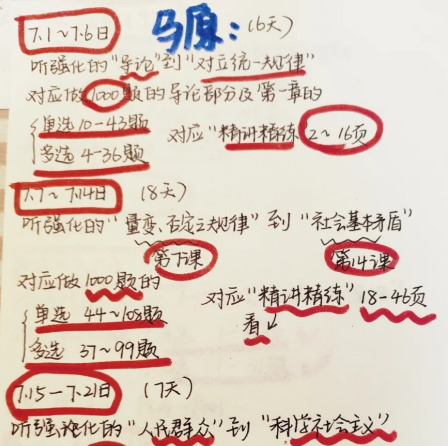 马原：(6天)
7.1～7.6日
听强化的“导论”到“对立统一规律”
对应做1000题的导论部分及第一章的
单选10-43题 对应“精讲精练 2～16页
多选4-36题
7.7～7.14日 (8天)
听强化的“量变、否定之规律”到“社会基本矛盾”
第7课 第14课
对应做1000题的
单选 44～108题 对应“精讲精练”18-46页
多选 37～99题 看
7.15-7.21日 (7天)
听强化的“人民群众”到“科学社会主义”